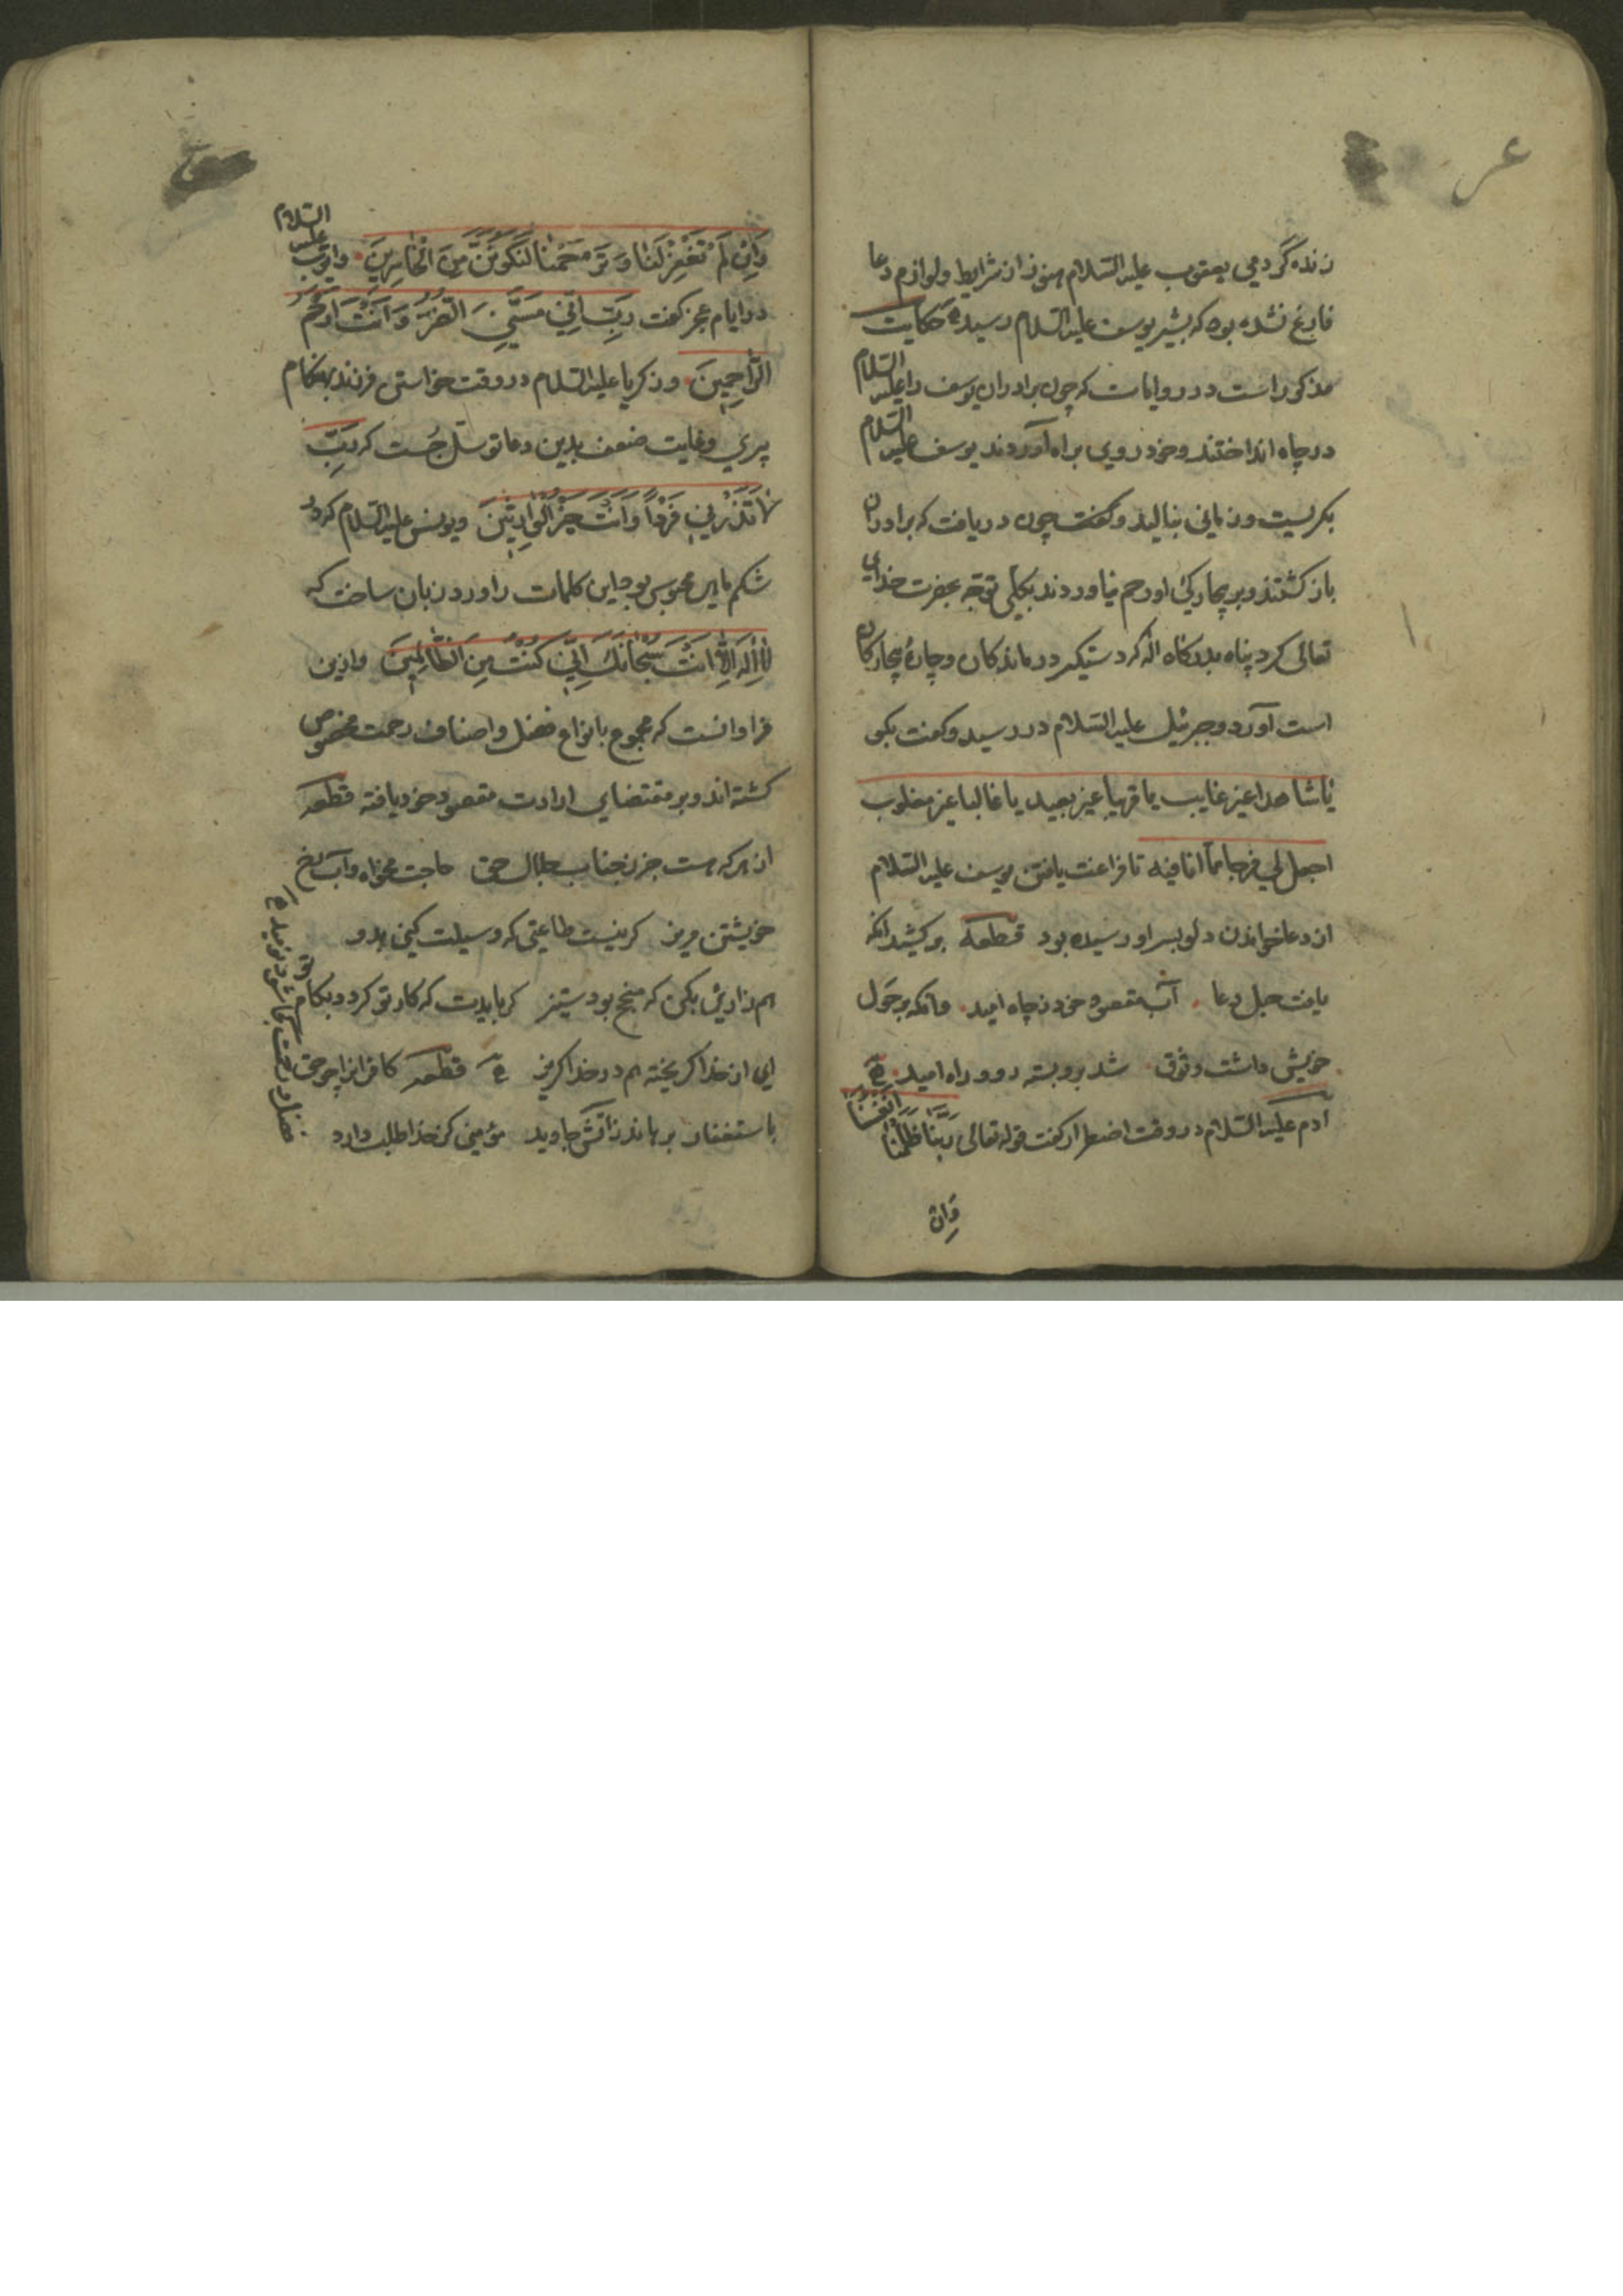 زنده گردمی یعقوب علیه السلام هنوز از شرایط ولوازم دعا
فارغ نشده بود که بشیر یوسف علیه السلام رسید حکایت
مذکور است در روایات که چون برادران یوسف را علیه السلام
در چاه انداختند وخود روی براه آوردند یوسف علیه السلام
بکریست وزمانی بنالید وکفت چون دریافت که برادران
باز کشتند وبر بیچارکی او رحم نیاوردند بکلی توجه بحضرت خدای
تعالی کرد پناه بدرکاه اله که دستکیر درماندکان وچارهٔ بیچارکان
است آورد وجبرئیل علیه السلام در رسید وکفت بکوی
یا شاهدا غیر غایب یا قریبا غیر بعید یا غالبا غیر مغلوب
اجعل لی فرجا مما انا فیه تا فراغت یافتن یوسف علیه السلام
از دعا خواندن دلو بسر او رسیده بود قطعه برکشید انکه
یافت حبل دعا آب مقصود خود ز چاه امید وانکه بر حول
خویش داشت وثوق شد برو بسته در وراه امید
ادم علیه السلام در وقت اضطرار کفت قوله تعالی ربنا ظلمنا انفسنا
وان
وَاِنْ لَمْ تَغْفِرْ لَنَا وَتَرْحَمْنَا لَنَكُونَنَّ مِنَ الْخَاسِرِينَ وایوب علیه السلام
در ایام عجز کفت رَبِّ اَنِّي مَسَّنِيَ الضُّرُّ وَاَنْتَ اَرْحَمُ
الرَّاحِمِينَ وزکریا علیه السلام در وقت خواستن فرزند بهنکام
پیری وغایت ضعف بدین دعا توسل جُست که رَبِّ
لَا تَذَرْنِي فَرْدًا وَاَنْتَ خَيْرُ الْوَارِثِينَ ویونس علیه السلام که در
شکم ماهی محبوس بود این کلمات را ورد زبان ساخت که
لَا اِلٰهَ اِلَّا اَنْتَ سُبْحَانَكَ اِنِّي كُنْتُ مِنَ الظَّالِمِينَ وازین
فراوانست که مجموع بانواع فضل واصناف رحمت مخصوص
کشته اند وبر مقتضای ارادت مقصود خود یافته قطعه
از هر که هست جز ز جناب جلال حق حاجت مخواه وآب رخ
خویشتن مریز کر نیست طاعتی که وسیلت کنی بدو
هم زاریی بکن که منجح بود ستیز کر بایدت که کار تو کردد بکام تو
ای از خدا کریخته هم در خدا کریز قطعه کافرانرا چو حق
باستغفار برهاند ز آتش جاوید مؤمنی کز خدا طلب دارد
فضل ورحمت کجا شود نومید